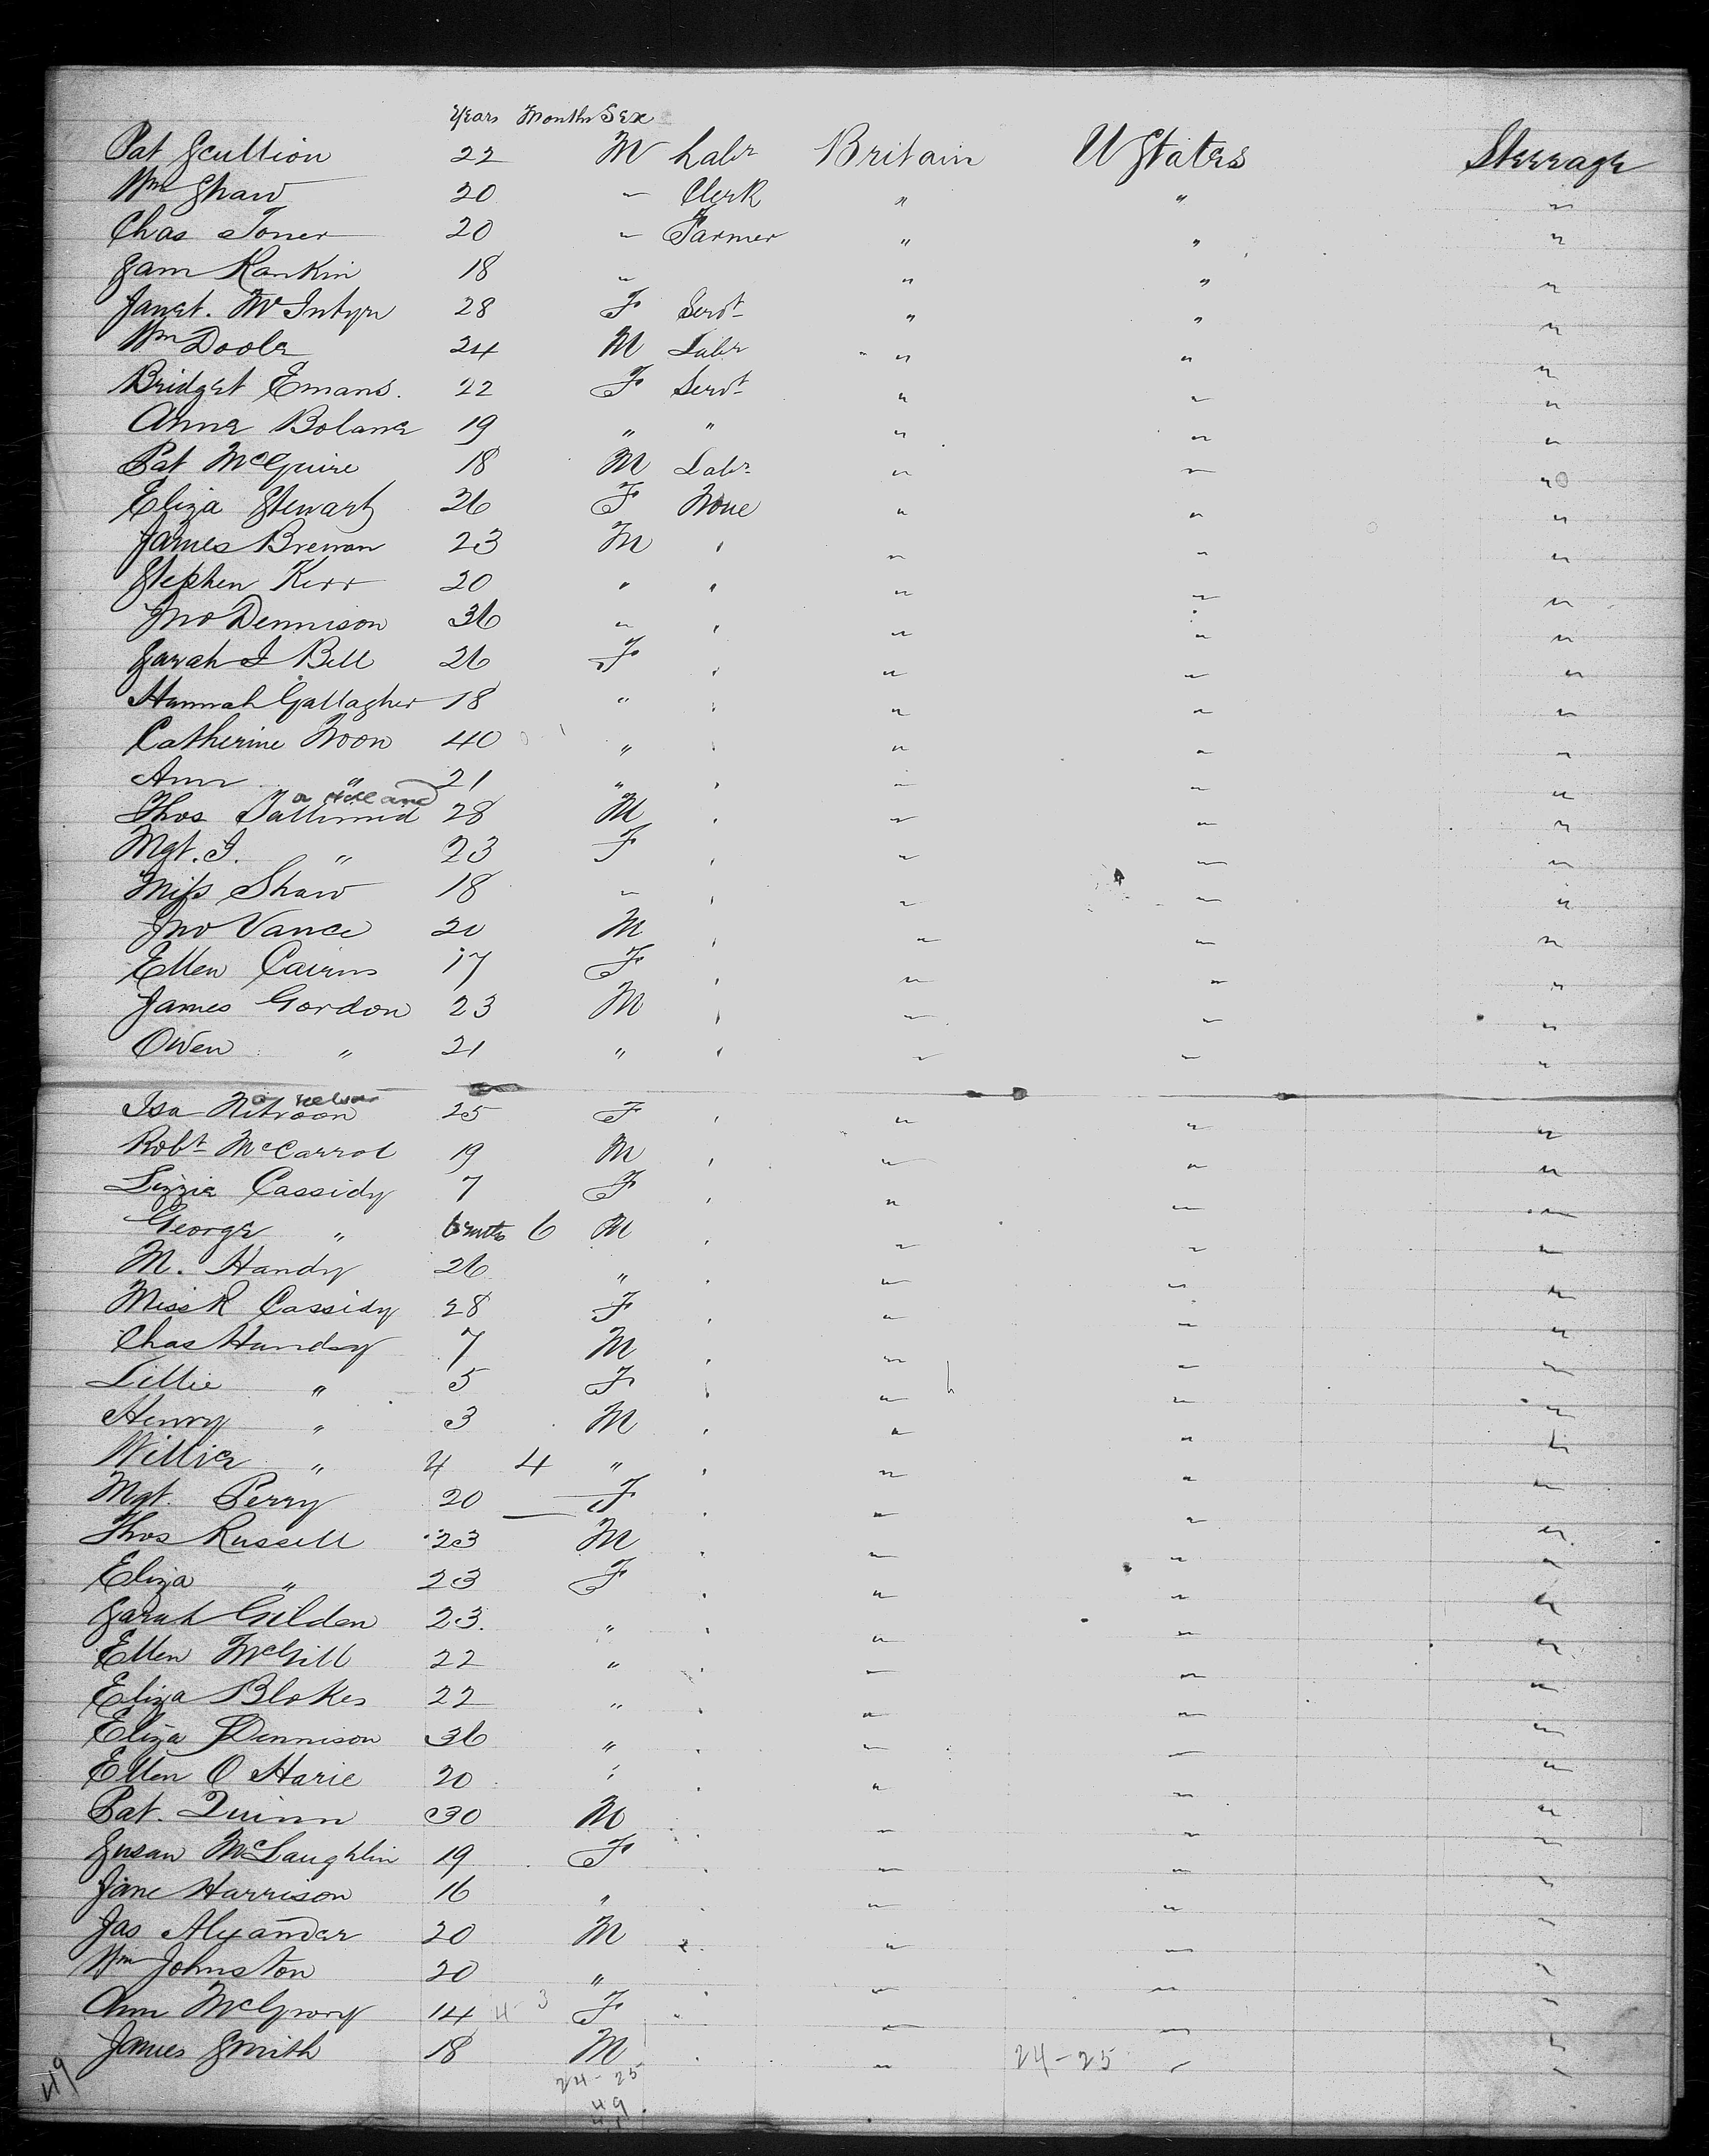 Years Months Sex
Pat Scullion 22 M Labr Britain U States Steerage
Wm Shaw 20 " Clerk " " "
Chas Toner 20 " Farmer " " "
Sam Rankin 18 " " " "
Janet. McIntyre 28 F Servt " " "
Wm Doole 24 M Labr " " "
Bridget Emans. 22 F Servt " " "
Anne Bolane 19 " " " " "
Pat McGuire 18 M Labr " " "
Eliza Stewart 26 F None " " "
James Brennan 23 M " " " "
Stephen Kerr 20 " " " " "
Jno Dennison 36 " " " " "
Sarah J Bell 26 F " " " "
Hannah Gallagher 18 " " " " "
Catherine Noon 40 " " " " "
Ann " 21 " " " " "
a Holland
Thos 28 M " " " "
Mgt. J. " 23 F " " " "
Miss Shaw 18 " " " " "
Jno Vance 20 M " " " "
Ellen Cairns 17 F " " " "
James Gordon 23 M " " " "
Owen " 21 " " " " "
Isa 25 F " " " "
Robt McCarrol 19 M " " " "
Lizzie Cassidy 7 F " " " "
George " 6 M " " " "
M. Handy 26 " " " " "
Miss R Cassidy 28 F " " " "
Chas Handy 7 M " " " "
Lillie " 5 F " " " "
Henry " 3 M " " " "
Willie " 4 4 " " " " "
Mgt. Perry 20 F " " " "
Thos Russell 23 M " " " "
Eliza " 23 F " " " "
Sarah Gilden 23. " " " " "
Ellen McGill 22 " " " " "
Eliza Blokes 22 " " " " "
Eliza Dennison 36 " " " " "
Ellen O Harie 20 " " " " "
Pat. Quinn 30 M " " " "
Susan McLaughlin 19 F " " " "
Jane Harrison 16 " " " " "
Jas Alexander 20 M " " " "
Wm Johnston 20 " " " " "
Ann McGrory 14 4 3 F " " " "
James Smith 18 M " " 24-25 " "
49 24-25
49